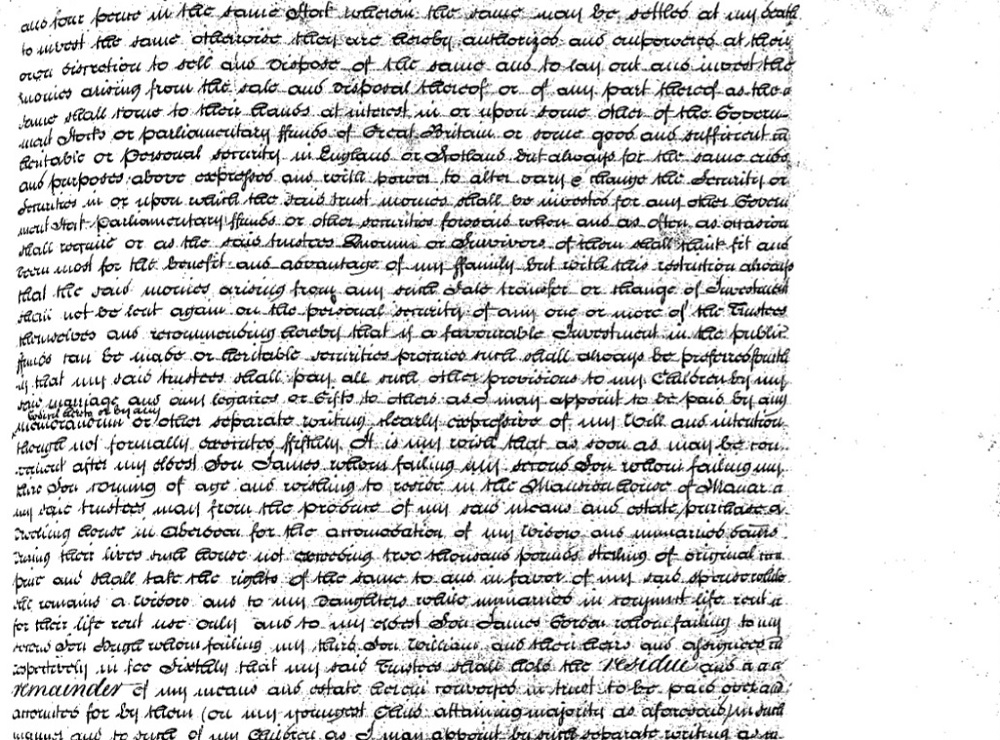 and four pence in the same Stock whereon the same may be settled at my death
to invest the same otherwise they are hereby authorized and empowered at their
own discretion to sell and dispose of the same and to lay out and invest the
monies arising from the sale and disposal thereof or of any part thereof as the
same shall come to their hands at interest in or upon some other of the Govern
ment Stocks or parliamentary ffunds of Great Britain or some good and sufficient
heritable or personal security in England or Scotland but always for the same ends
and purposes above expressed and with power to alter vary & change the Security or
Securities in or upon which the said trust monies shall be invested for any other Govern
ment Stock Parliamentary ffunds or other securities foresaid when and as often as occasion
shall require or as the said trustees Quorum or Survivors of them shall think fit and
deem most for the benefit and advantage of my ffamily but with this restriction always
that the said monies arising from any such Sale transfer or change of Investment
shall not be lent again on the personal security of any one or more of the Trustees
themselves and recommending hereby that if a favourable Investment in the public
ffunds can be made or heritable securities procured such shall always be preferred
that my said trustees shall pay all such other provisions to my Children by my
said marriage and any legacies or Gifts to others as I may appoint to be paid by any
Codicil hereto or by any
memorandum or other separate writing clearly expressive of my Will and intention
though not formally executed ffifthly It is my wish that as soon as may be con
venient after my eldest Son James whom failing my second Son whom failing my
third Son coming of age and wishing to reside in the Mansion house of Manar
my said trustees may from the produce of my said means and estate purchase a
dwelling house in Aberdeen for the accomodation of my widow and unmarried
during their lives such house not exceeding two thousand pounds sterling of original
price and shall take the rights of the same to and in favor of my said spouse while
she remains a widow and to my daughters while unmarried in conjunct life rent
for their life rent use only and to my eldest Son James Gordon whom failing to my
second Son Hugh whom failing my third Son William and their heirs and assignees
respectively in fee Sixthly that my said Trustees shall hold the residue and
remainder of my means and estate herein conveyed in trust to be paid over and
accounted for by them (on my youngest Child attaining majority as aforesaid) in such
manner and to such of my Children as I may appoint by such separate writing as